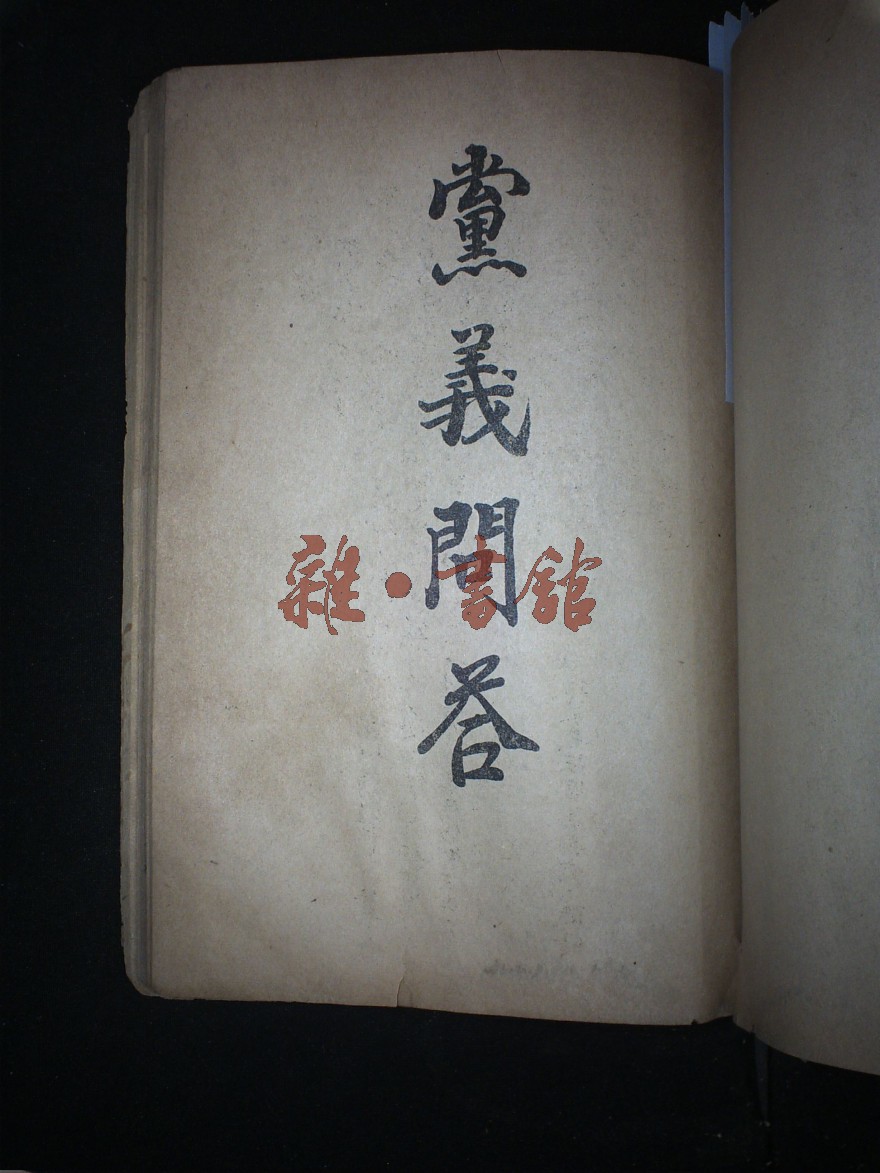 黨義問答
雜·書館